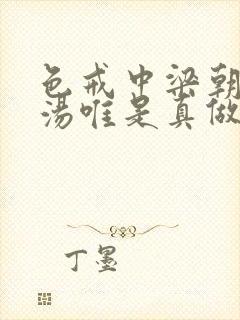 色戒中梁朝
汤唯是真做
丁墨